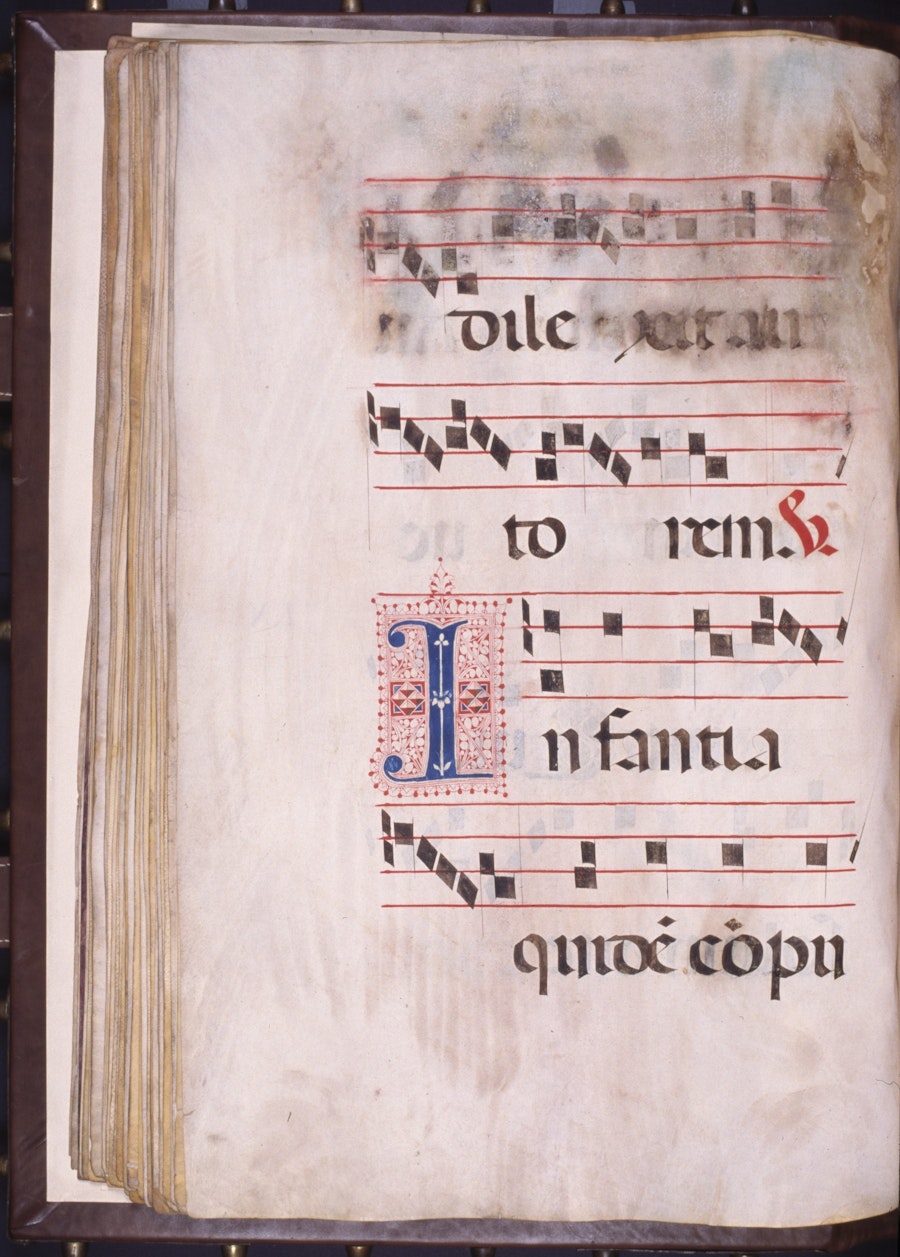 dile xit au
to rem. ℣.
In fantia
quidē cōpu